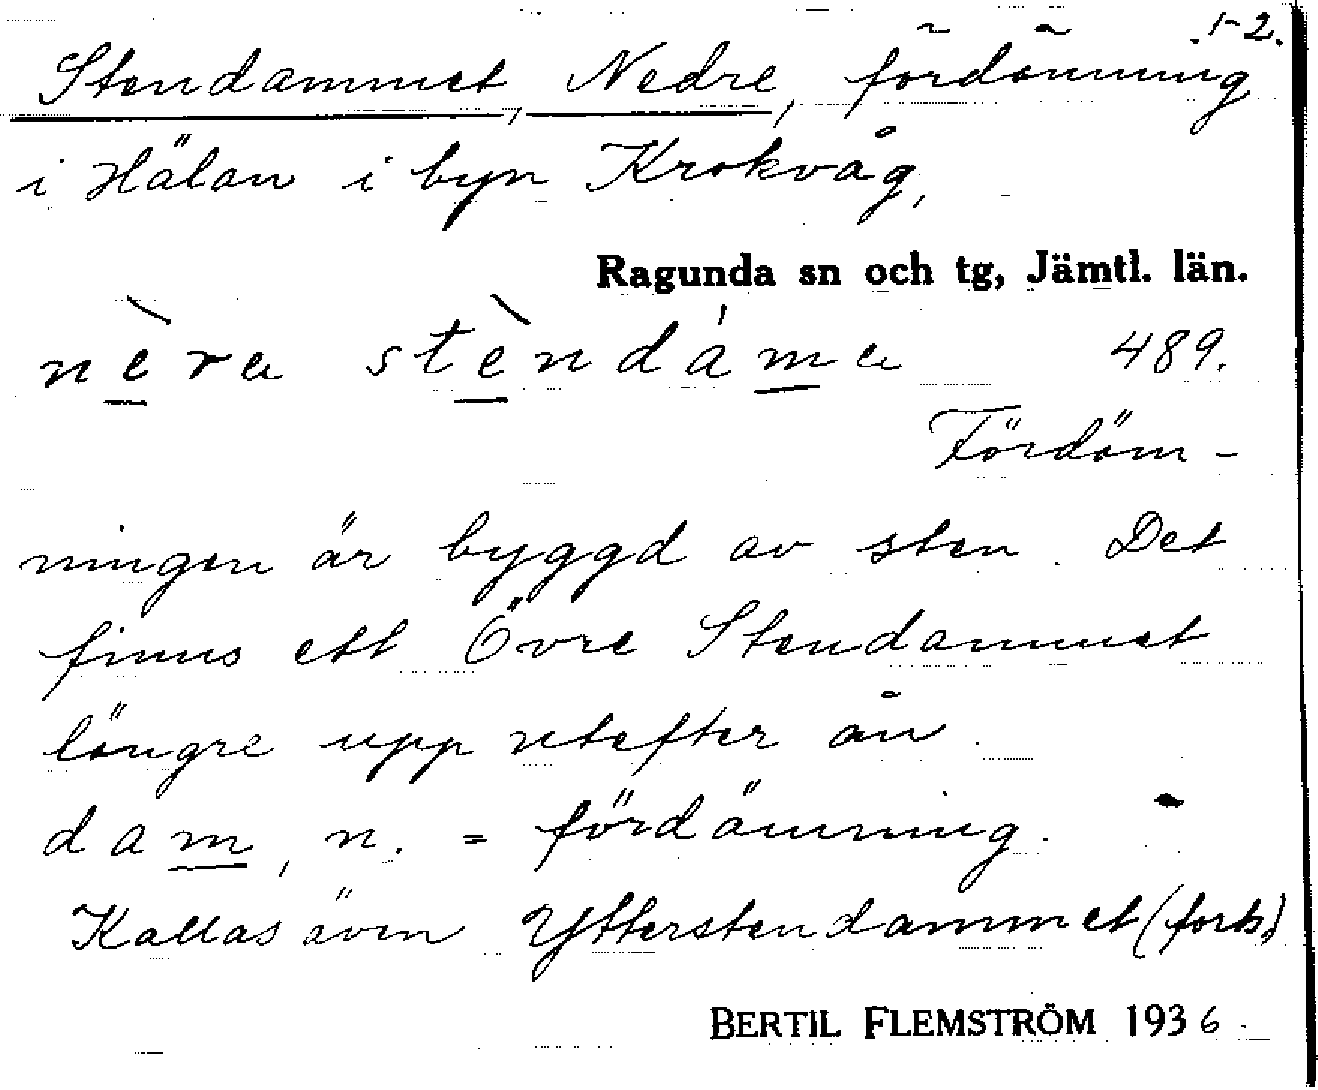 1-2.
Stendammet, Nedre, fördämning
i Hälan i byn Krokvåg,
Ragunda sn och tg, Jämtl. län.
nèra stèndáma 489.
Fördäm-
ningen är byggd av sten. Det
finns ett Övre Stendammet
längre upp utefter ån.
dam, n. = fördämning.
Kallas även Ytterstendammet (forts.)
BERTIL FLEMSTRÖM 1936.